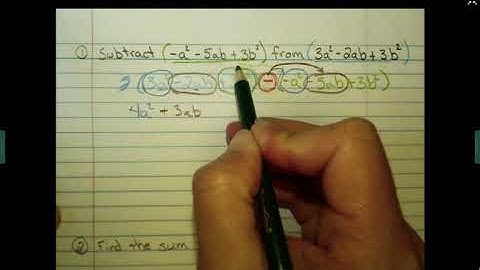 ① Subtract (-a² - 5ab + 3b²) from (3a² - 2ab + 3b²)
(3a² - 2ab + - (-a² - 5ab + 3b²)
4a² + 3ab
② Find the sum